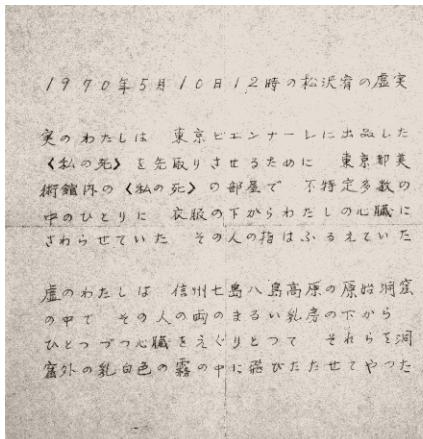 1970年5月10日12時の松沢宥の虚実
実のわたしは 東京ビエンナーレに出品した
〈私の死〉を先取りさせるために 東京都美
術館内の〈私の死〉の部屋で 不特定多数の
中のひとりに 衣服の下からわたしの心臓に
さわらせていた その人の指はふるえていた
虚のわたしは 信州七島八島高原の原始洞窟
の中で その人の両のまるい乳房の下から
ひとつづつ心臓をえぐりとつて それらを洞
窟外の乳白色の霧の中に飛びたたせてやつた